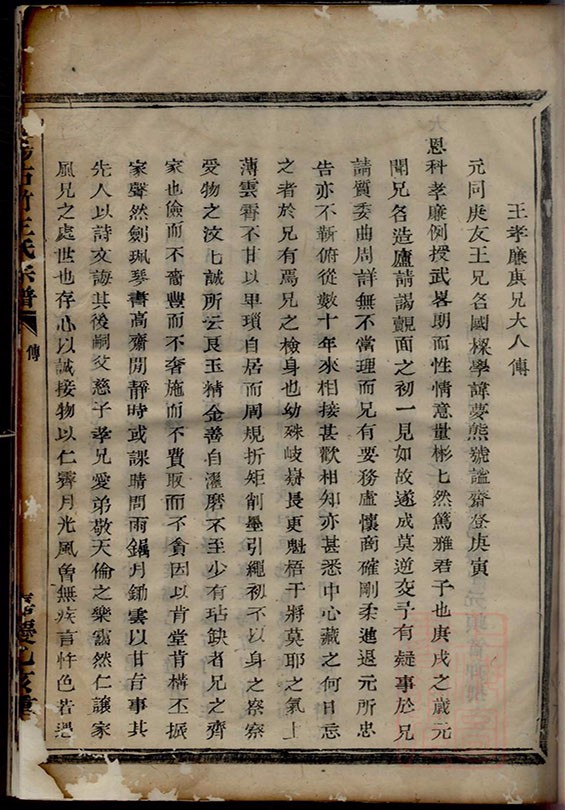 王孝廉庚兄大人傳
元同庚友王兄名國樑學諱夢熊號謐齋登庚寅
恩科孝廉例授武畧期而性情意量彬匕然篤雅君子也庚戌之歲元
聞兄名造廬請謁覿面之初一見如故遂成莫逆交予有疑事於兄
請質委曲周詳無不當理而兄有要務盧懷商確剛柔進退元所忠
告亦不靳俯從數十年來相接甚歡相知亦甚悉中心藏之何日忘
之者於兄有焉兄之檢身也幼殊岐嶷長更魁梧干將莫耶之氣上
薄雲霄不甘以卑瑣自居而周規折矩削墨引繩初不以身之察察
受物之汶匕誠所云良玉精金善自濯磨不至少有玷缺者兄之齊
家也儉而不嗇豐而不奢施而不費取而不貪因以肯堂肯構丕振
家聲然劍珮琴書高齋閒靜時或課晴問雨鋤月鋤雲以甘旨事其
先人以詩文誨其後嗣父慈子孝兄愛弟敬天倫之樂靄然仁讓家
風兄之處世也存心以誠接物以仁霽月光風曾無疾言忤色若遇
王氏宗譜
傳